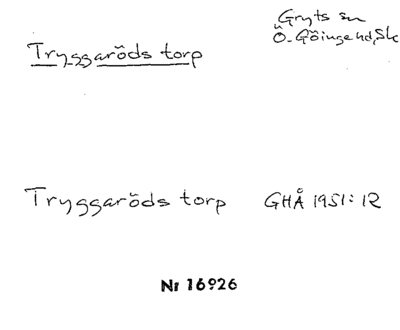 Gryts sn
Ö. Göinge hd, Sk
Tryggaröds torp
Tryggaröds torp GHÅ 1951: 12
Nr 16926